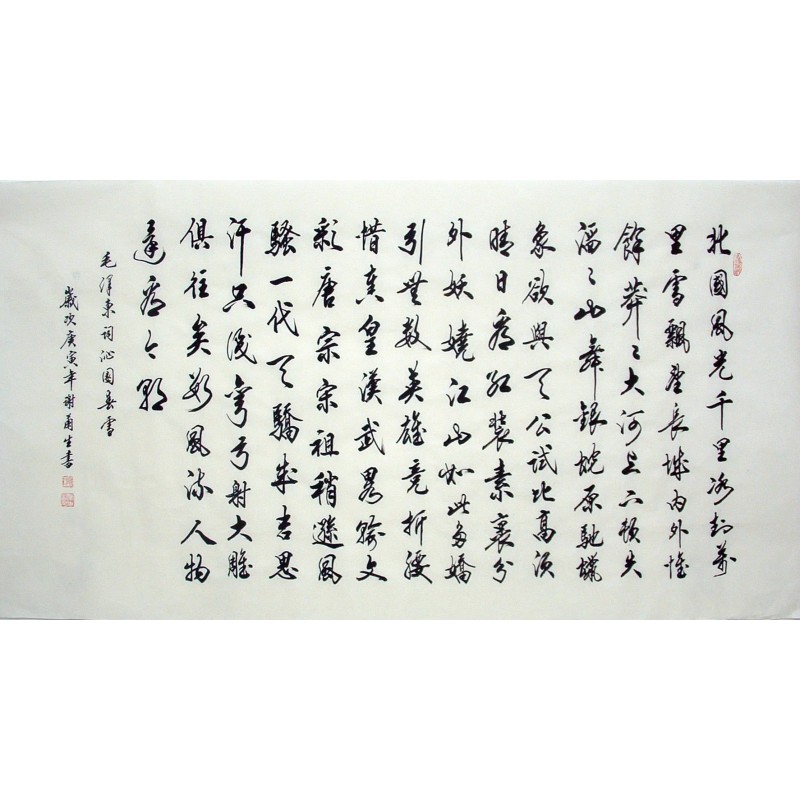 北國風光千里冰封萬
里雪飄望長城內外惟
餘莽〻大河上下頓失
滔〻山舞銀蛇原馳蠟
象欲與天公試比高須
晴日看紅裝素裹分
外妖嬈江山如此多嬌
引無數英雄競折腰
惜秦皇漢武略輸文
彩唐宗宋祖稍遜風
騷一代天驕成吉思
汗只識彎弓射大雕
俱往矣數風流人物
還看今朝
毛澤東詞沁園春雪
歲次庚寅年謝甫生書